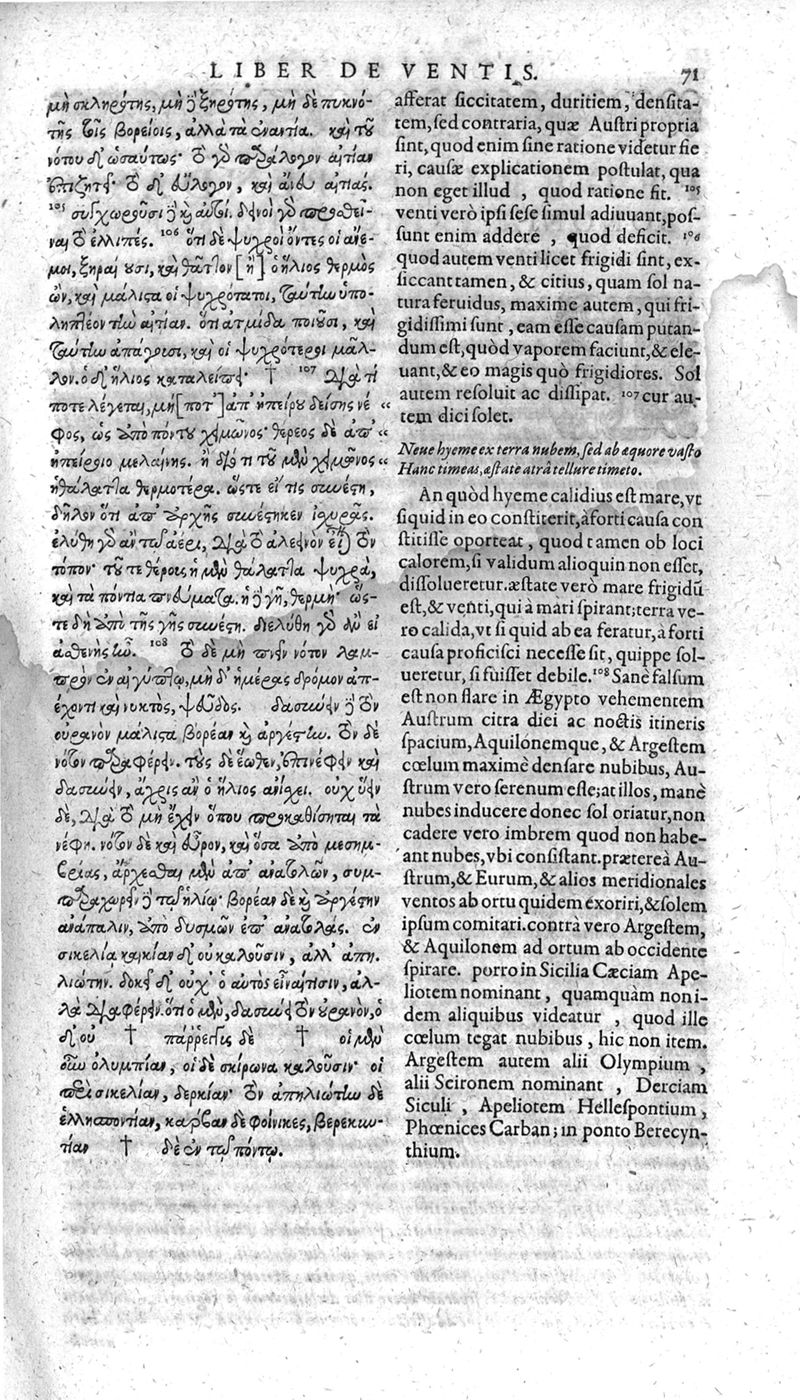 LIBER DE VENTIS. 71
μὴ σκληρότης, μὴ ἢ ξηρότης, μὴ δὲ πυκνό-
της τοῖς βορείοις, ἀλλὰ τὰ ἐναντία. καὶ τοῦ
νότου δ' ὡσαύτως· τὸ γὸ παράλογον αἰτίαν
ἐπιζητεῖ· τὸ δ' εὔλογον, καὶ ἄνευ αἰτίας.
105 συγχωροῦσι ἢ καὶ αὐτοί. δεινοὶ γὸ προσθεῖ-
ναι τὸ ἐλλιπές. 106 ὅτι δὲ ψυχροὶ ὄντες οἱ ἄνε-
μοι, ξηραίνουσι, καὶ θᾶττον [ἢ] ὁ ἥλιος θερμὸς
ὢν, καὶ μάλιστα οἱ ψυχρότατοι, ταύτην ὑπο-
ληπτέον τὴν αἰτίαν. ὅτι ἀτμίδα ποιοῦσι, καὶ
ταύτην ἀπάγουσι, καὶ οἱ ψυχρότεροι μᾶλ-
λον. ὁ δ' ἥλιος καταλείπει· † 107 Διὰ τί
ποτε λέγεται, μὴ [ποτ'] ἀπ' ἠπείρου δείσῃς νέ «
φος, ὡς ἀπὸ πόντου χειμῶνος· θέρεος δὲ ἀπ' «
ἠπείροιο μελαίνης. ἢ διότι τοῦ μὲν χειμῶνος «
ἡ θάλαττα θερμοτέρα. ὥστε εἴ τις συνέστη,
δῆλον ὅτι ἀπ' ἀρχῆς συνέστηκεν ἰσχυρᾶς.
ἐλύθη γὸ ἂν τῷ ἀέρι, διὰ τὸ ἀλεεινὸν εἶναι τὸν
τόπον· τοῦ τε θέρους, ἡ μὲν θάλαττα ψυχρά,
καὶ τὰ πόντια πνεύματα. ἡ ἢ γῆ, θερμή· ὥς-
τε δὴ ἀπὸ τῆς γῆς συνέστη. διελύθη γὸ ἂν εἰ
ἀσθενὴς ἦν. 108 τὸ δὲ μὴ πνεῖν νότον λαμ-
πρὸν ἐν αἰγύπτῳ, μὴ δ' ἡμέρας δρόμον ἀπ-
έχοντι καὶ νυκτὸς, ψεῦδος. δασύνειν ἢ τὸν
οὐρανὸν μάλιστα βορέαν καὶ ἀργέστην. τὸν δὲ
νότον διαφέρειν. τοὺς δὲ ἕωθεν, ἐπινέφειν καὶ
δασύνειν, ἄχρις ἂν ὁ ἥλιος ἀνίσχει. οὐχ ὕειν
δὲ, διὰ τὸ μὴ ἔχειν ὅπου προκαθίσηται τὰ
νέφη. νότον δὲ καὶ εὖρον, καὶ ὅσα ἀπὸ μεσημ-
βρίας, ἄρχεσθαι μὲν ἀπ' ἀνατολῶν, συμ-
παραχωρεῖν ἢ τῷ ἡλίῳ· βορέαν δὲ καὶ ἀργέστην
ἀνάπαλιν, ἀπὸ δυσμῶν ἐπ' ἀνατολάς. ἐν
σικελίᾳ καικίαν δ' οὐ καλοῦσιν, ἀλλ' ἀπη.
λιώτην. δοκεῖ δ' οὐχ' ὁ αὐτὸς εἶναί τισιν, ἀλ-
λὰ διαφέρειν. ὅτι ὁ μὲν, δασύνει τὸν οὐρανὸν, ὁ
δ' οὐ † πάῤῥεστις δὲ † οἱ μὲν
ὀλυμπίαν, οἱ δὲ σκίρωνα καλοῦσιν· οἱ
περὶ σικελίαν, δερκίαν· τὸν ἀπηλιώτην δὲ
ἑλλησποντίαν, καρβαν δὲ φοίνικες, βερεκυν-
τίαν † δὲ ἐν τῷ πόντῳ.
afferat siccitatem, duritiem, densita-
tem, sed contraria, quæ Austri propria
sint, quod enim sine ratione videtur fie
ri, causæ explicationem postulat, qua
non eget illud , quod ratione fit. 105
venti verò ipsi sese simul adiuuant, pos-
sunt enim addere , quod deficit. 106
quod autem venti licet frigidi sint, ex-
siccant tamen, & citius, quam sol na
tura feruidus, maxime autem, qui fri-
gidissimi sunt , eam esse causam putan-
dum est, quòd vaporem faciunt, & ele-
uant, & eo magis quò frigidiores. Sol
autem resoluit ac dissipat. 107 cur au-
tem dici solet.
Neue hyeme ex terra nubem, sed ab æquore vasto
Hanc timeas, æstate atrâ tellure timeto.
An quòd hyeme calidius est mare, vt
si quid in eo constiterit, à forti causa con
stitisse oporteat , quod tamen ob loci
calorem, si validum alioquin non esset,
dissolueretur. æstate verò mare frigidũ
est, & venti, qui à mari spirant; terra ve-
ro calida, vt si quid ab ea feratur, à forti
causa proficisci necesse sit, quippe sol-
ueretur, si fuisset debile. 108 Sanè falsum
est non flare in Ægypto vehementem
Austrum citra diei ac noctis itineris
spacium, Aquilónemque, & Argestem
cœlum maximè densare nubibus, Au-
strum vero serenum esse; at illos, manè
nubes inducere donec sol oriatur, non
cadere vero imbrem quod non habe-
ant nubes, vbi consistant. prætereà Au-
strum, & Eurum, & alios meridionales
ventos ab ortu quidem exoriri, & solem
ipsum comitari. contrà vero Argestem,
& Aquilonem ad ortum ab occidente
spirare. porro in Sicilia Cæciam Ape-
liotem nominant , quamquàm non i-
dem aliquibus videatur , quod ille
cœlum tegat nubibus , hic non item.
Argestem autem alii Olympium ,
alii Scironem nominant , Derciam
Siculi , Apeliotem Hellespontium ,
Phœnices Carban; in ponto Berecyn-
thium.